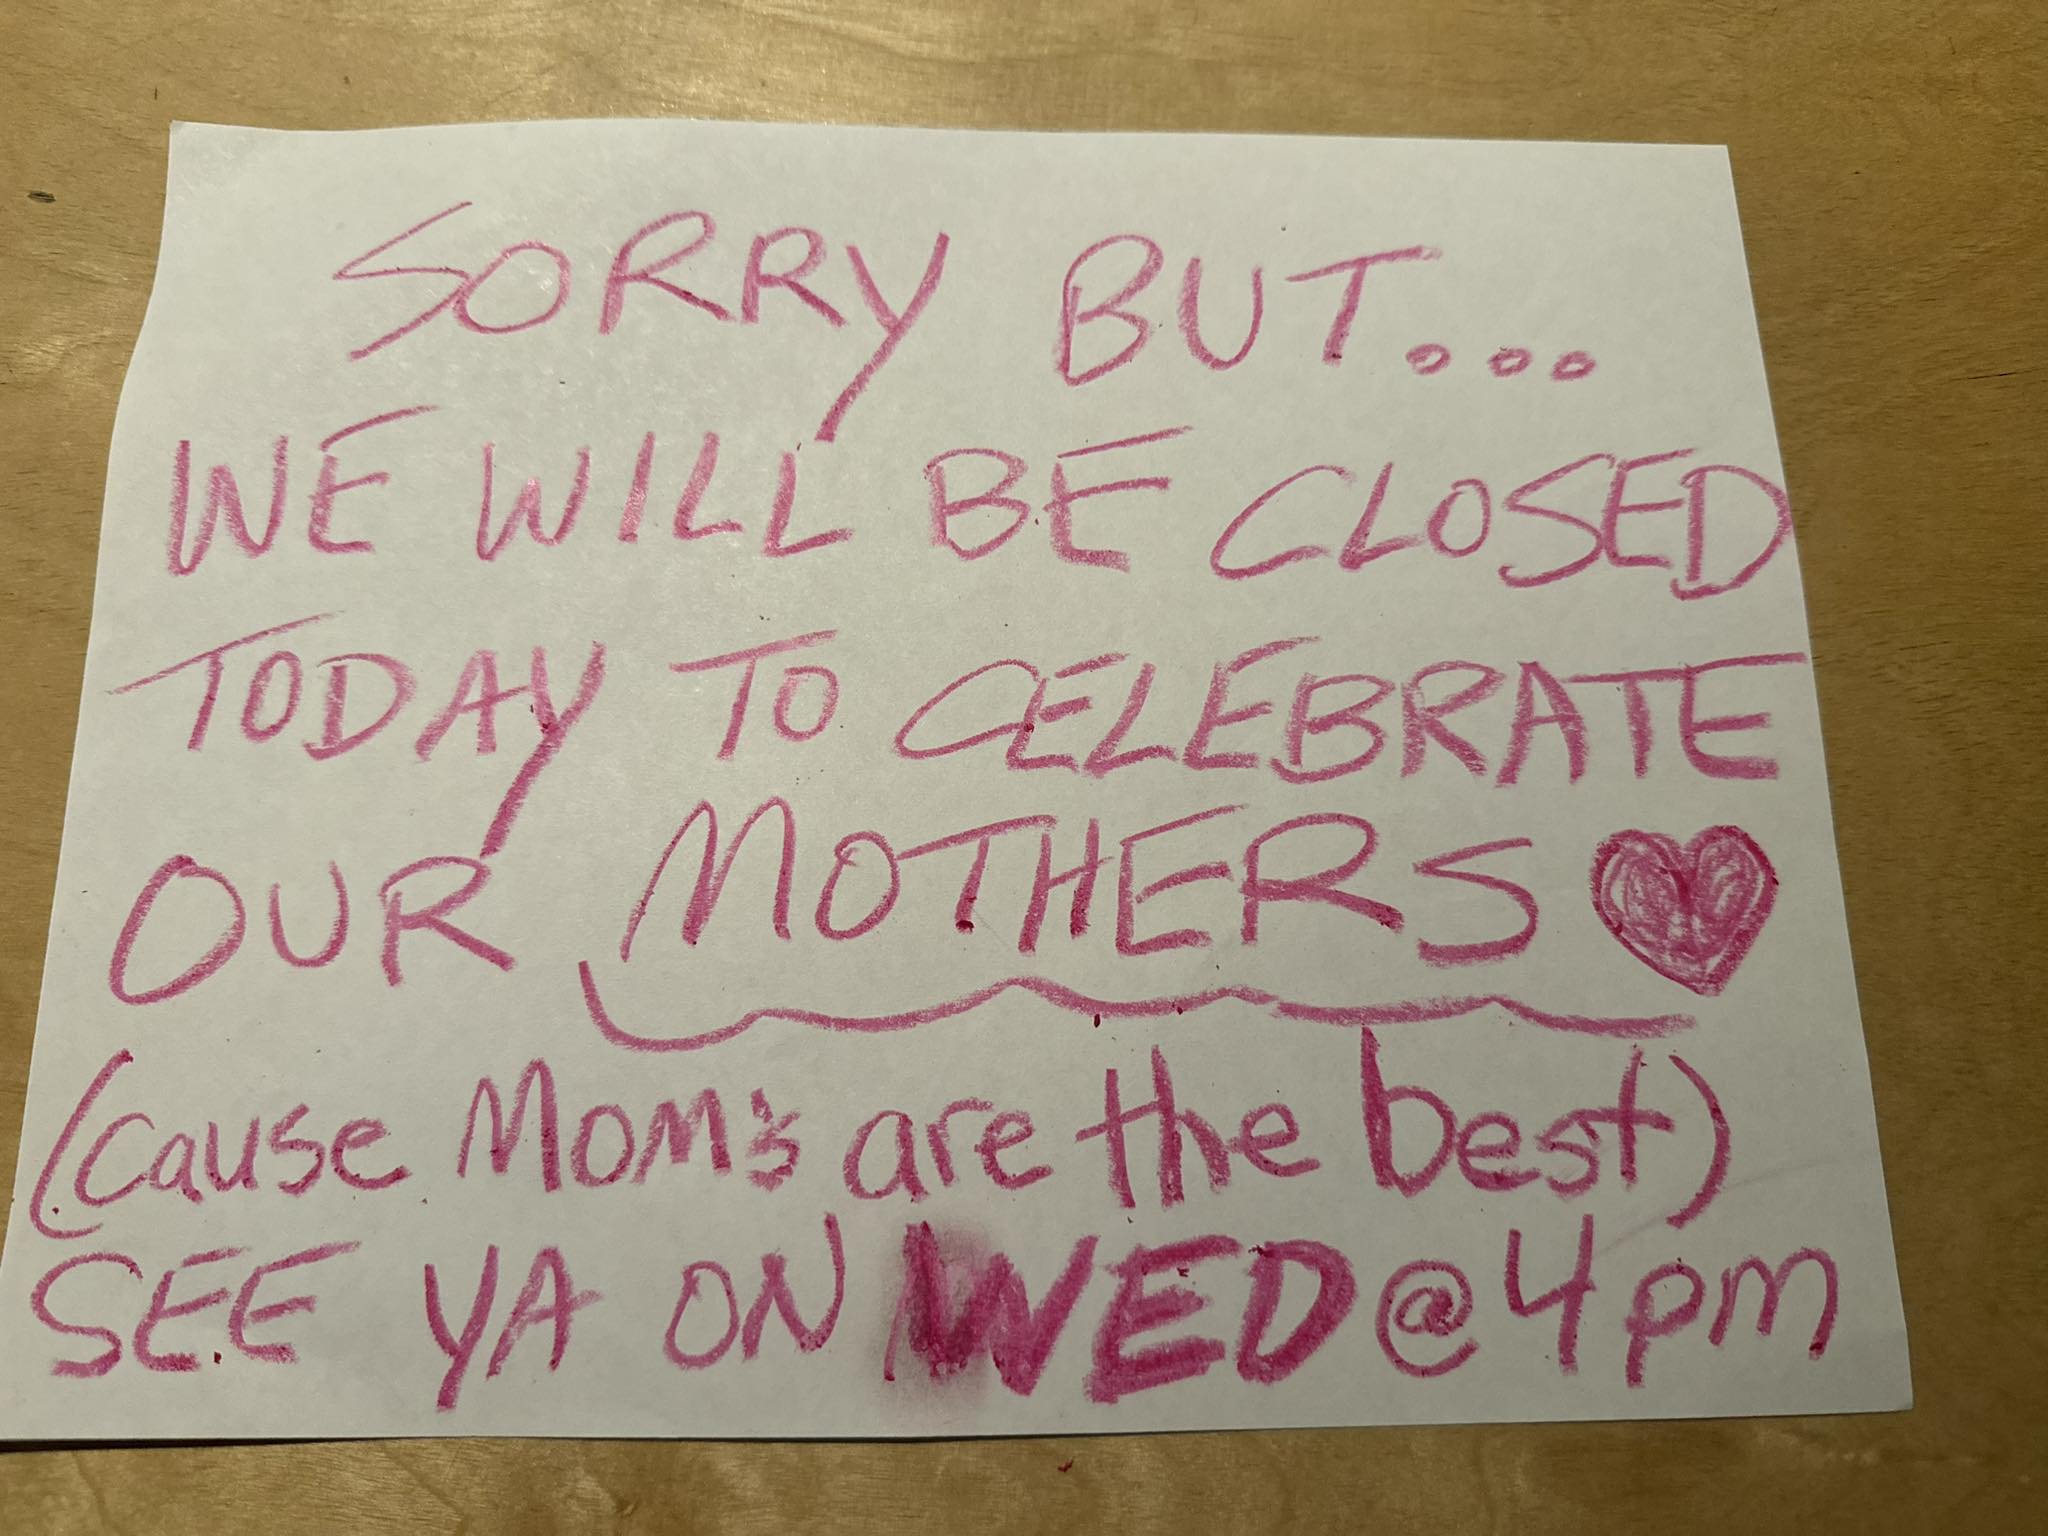 SORRY BUT...
WE WILL BE CLOSED
TODAY TO CELEBRATE
OUR MOTHERS
(cause Mom's are the best)
SEE YA ON WED @ 4pm